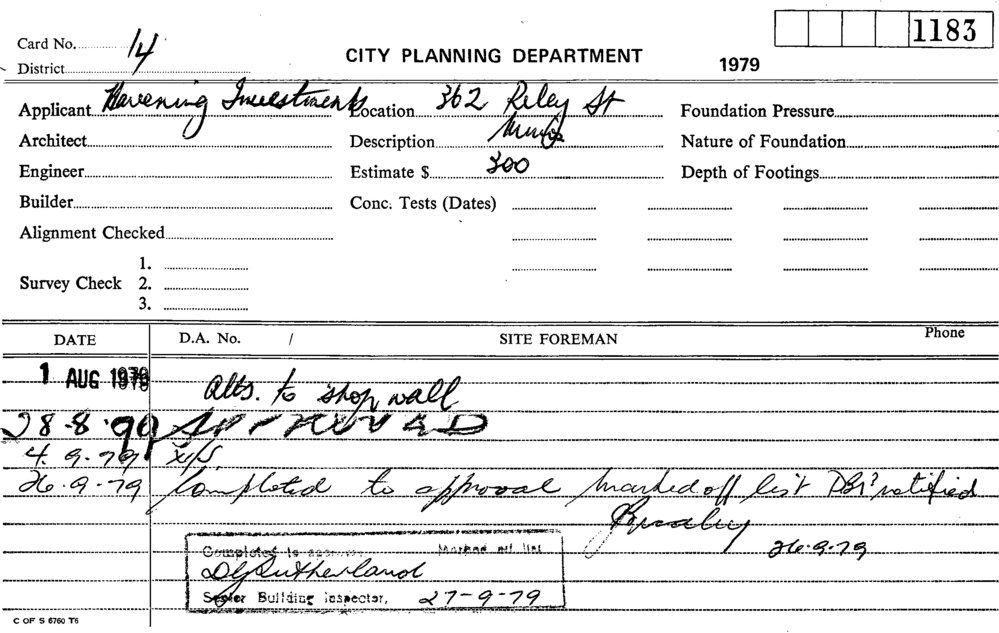 1183
Card No. 14
District
CITY PLANNING DEPARTMENT
1979
Applicant Investments Location 362 Riley St Foundation Pressure
Architect Description Nature of Foundation
Engineer Estimate $ 300 Depth of Footings
Builder Conc. Tests (Dates)
Alignment Checked
1.
Survey Check 2.
3.
DATE D.A. No. / SITE FOREMAN Phone
1 AUG 1979 Alts. to shop wall
28.8.79 APPROVED
4.9.79
26.9.79 Completed to approval marked off list notified
26.9.79
Completed to approval Marked off list
Sutherland
Senior Building Inspector, 27-9-79
C OF S 6760 T6